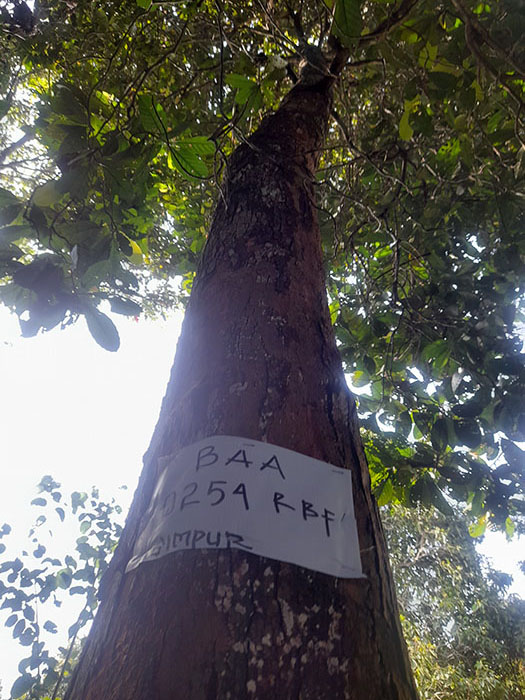 BAA
0254 RBF
SIMPUR